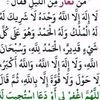 مَن تَعَارَّ مِنَ اللَّيْلِ فَقَالَ :
لَا إِلَهَ إِلَّا اللَّهُ وَحْدَهُ لَا شَرِيكَ
لَهُ الْمُلْكُ وَلَهُ الْحَمْدُ وَهُوَ عَلَى
شَيْءٍ قَدِيرٌ، الْحَمْدُ لِلَّهِ، وَسُبْحَانَ
وَلَا إِلَهَ إِلَّا اللَّهُ، وَاللَّهُ
حَوْلَ وَلَا قُوَّةَ إِلَّا بِاللَّهِ، ثُمَّ
اللَّهُمَّ اغْفِرْ لِي أَوْ دَعَا اسْتُجِيبَ